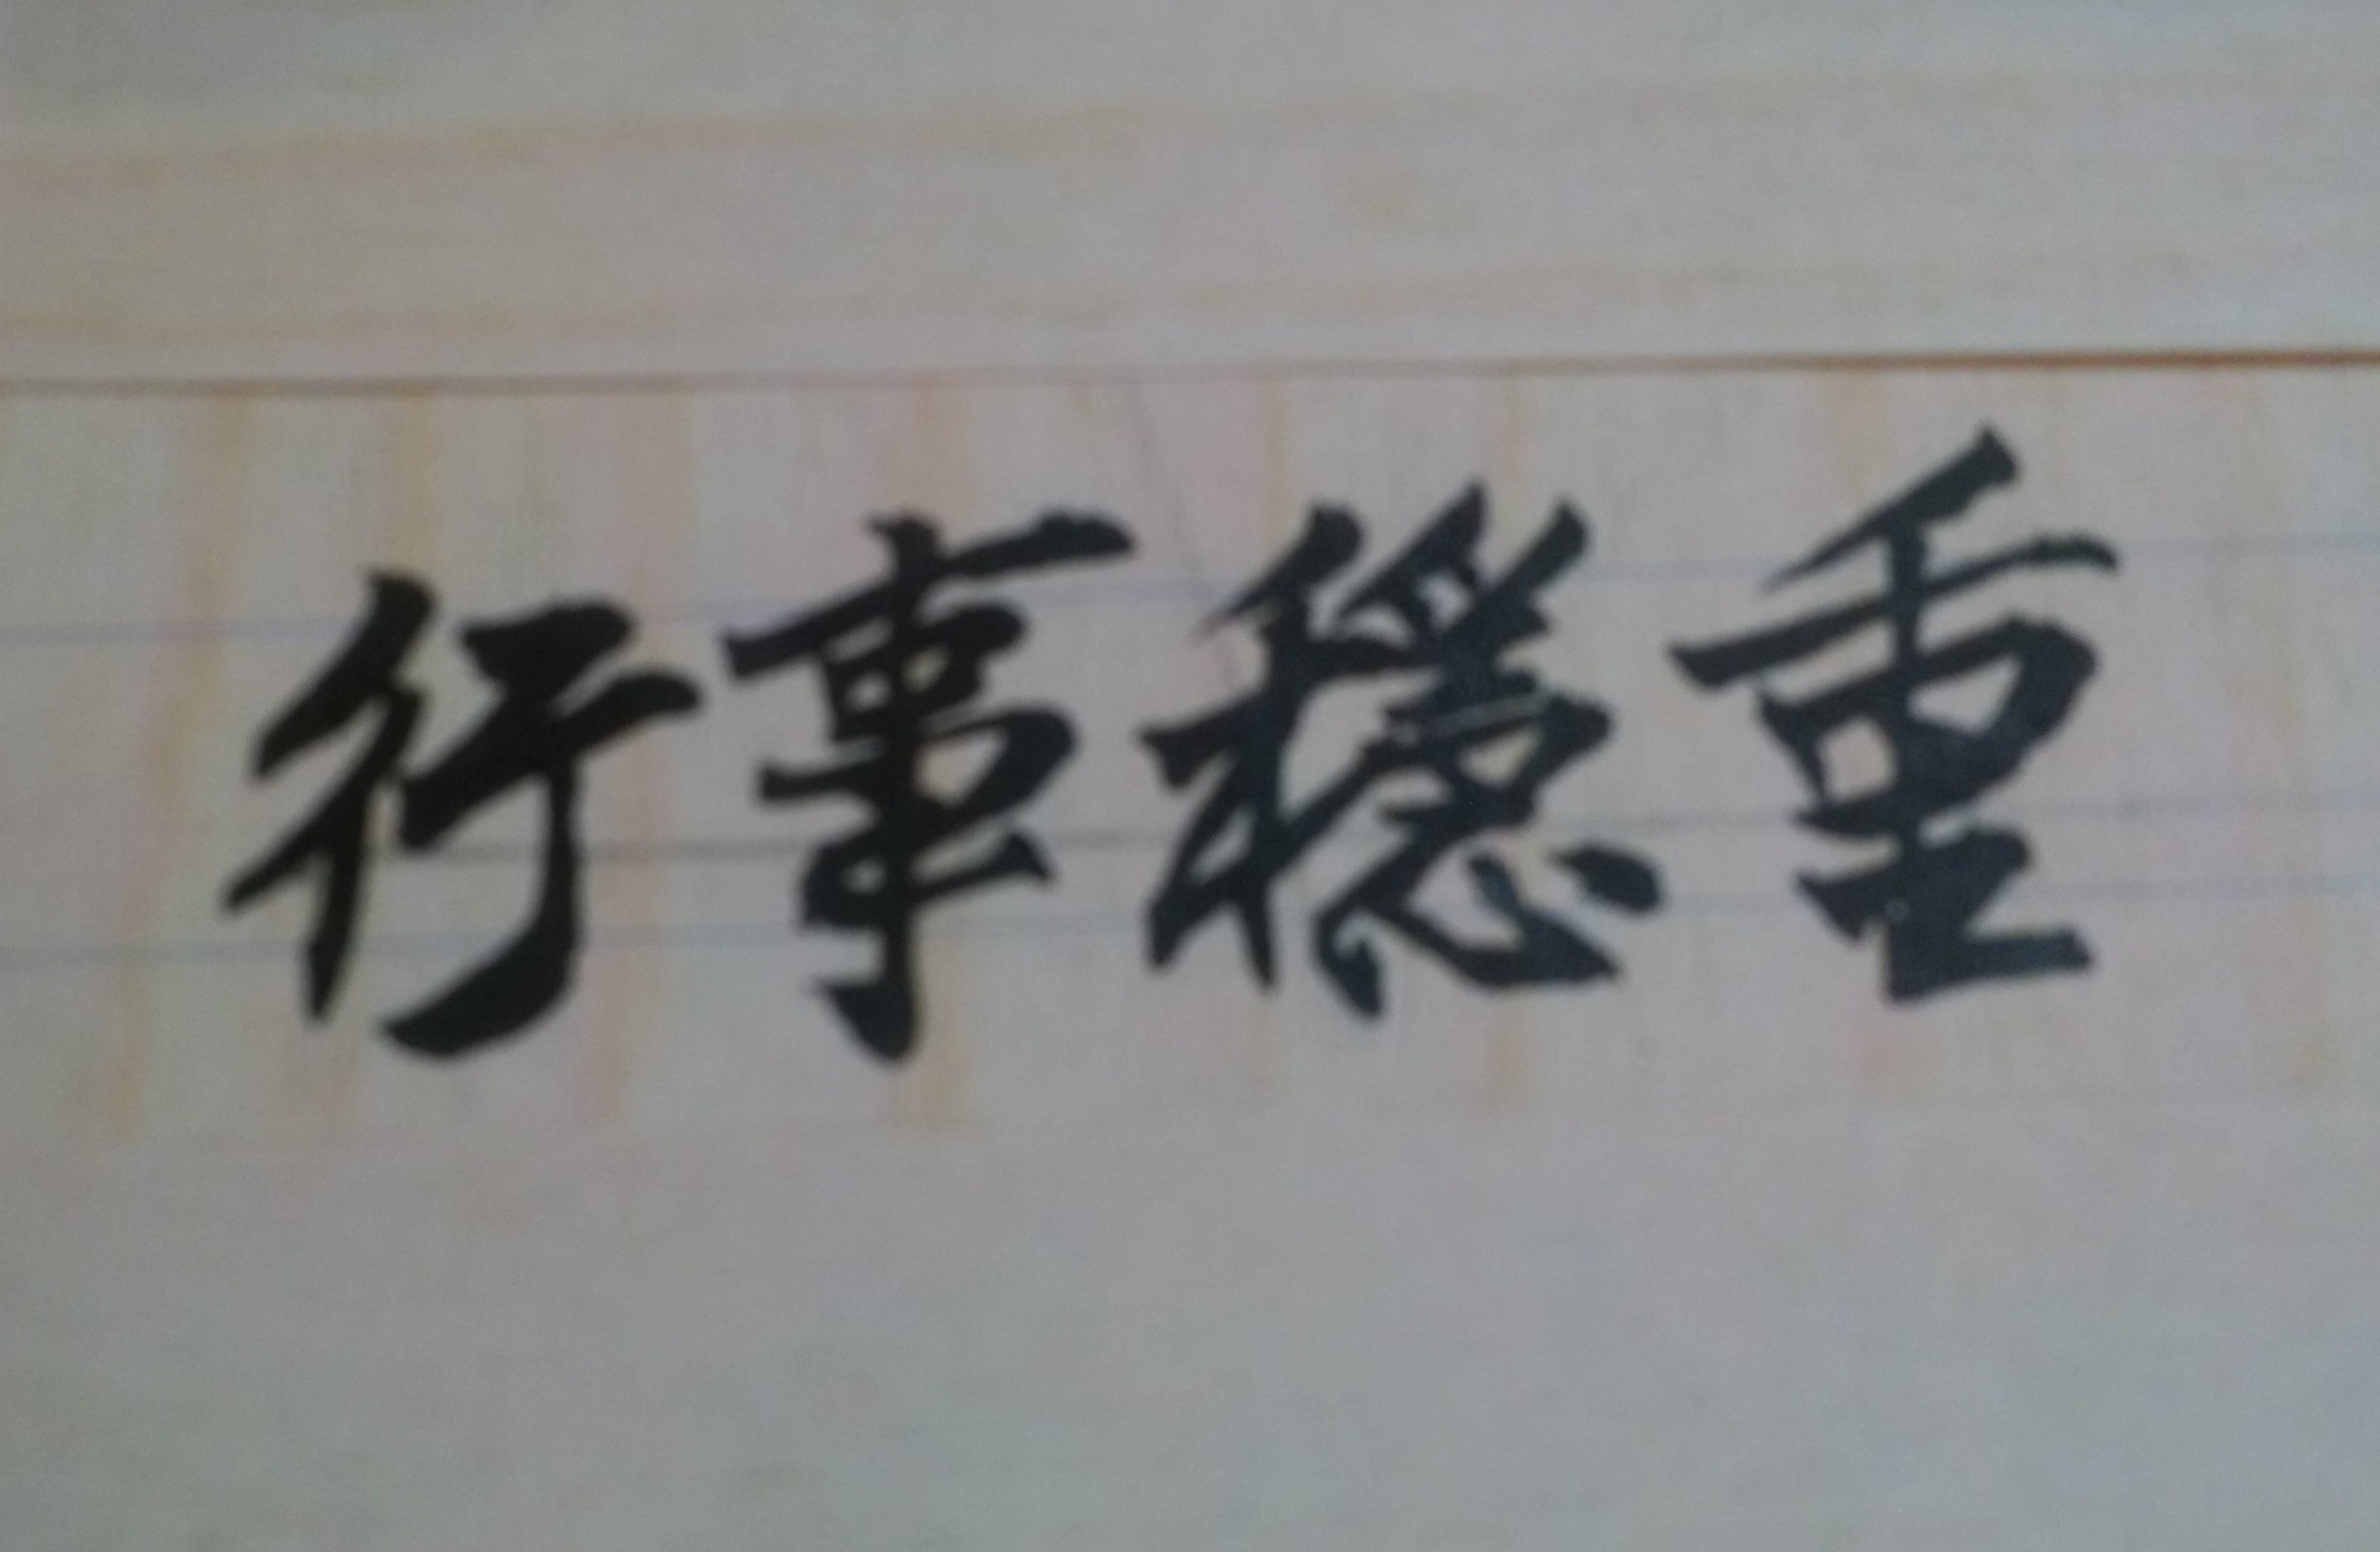 行事穩重